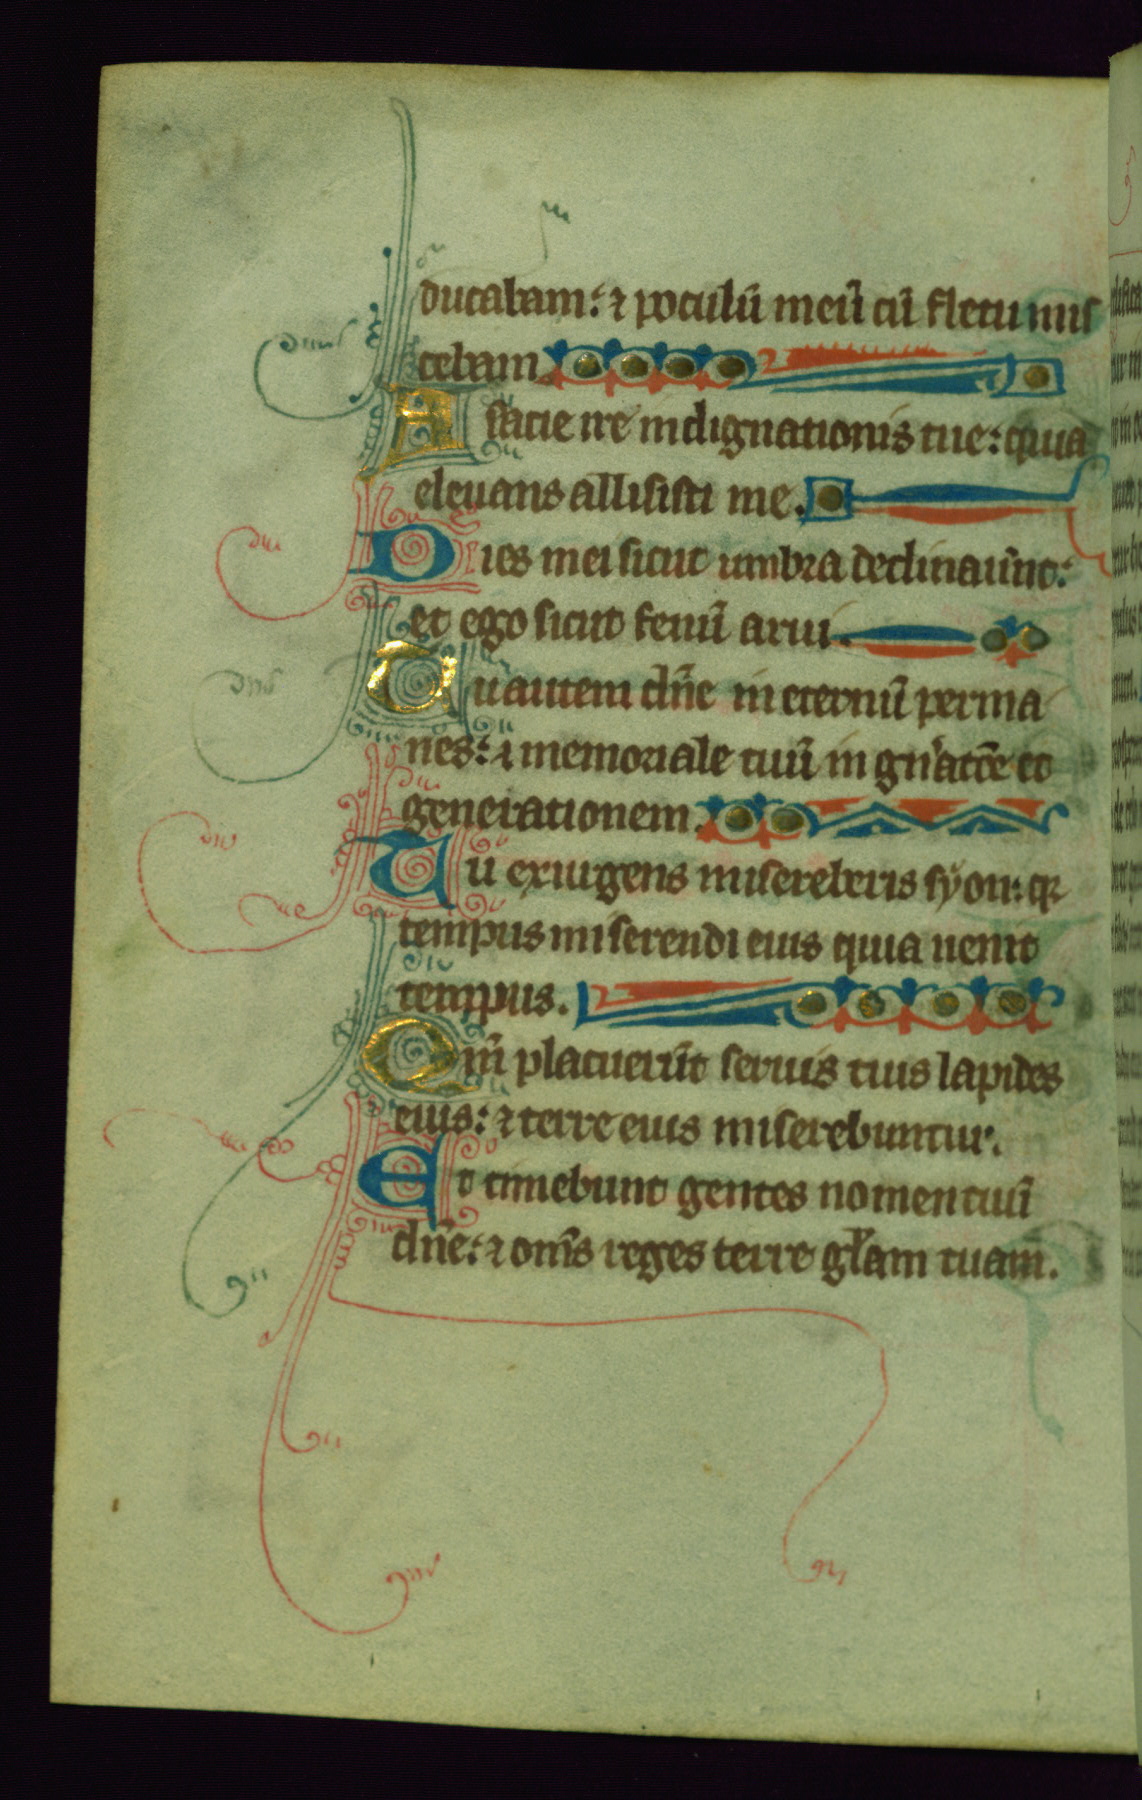 ducabam: ⁊ poculū meū cū fletu mis
cebam.
A facie ire indignationis tue: quia
eleuans allisisti me.
Dies mei sicut umbra declinauerūt:
et ego sicut fenū arui.
Tu autem dn̄e in eternū perma
nes: ⁊ memoriale tuū in gn̄atōe et
generationem.
Tu exurgens misereberis syon: qr
tempus miserendi eius quia uenit
tempus.
Qm̄ placuerūt seruis tuis lapides
eius: ⁊ terre eius miserebuntur.
Et timebunt gentes nomen tuū
dn̄e: ⁊ om̄s reges terre gl̄am tuam.